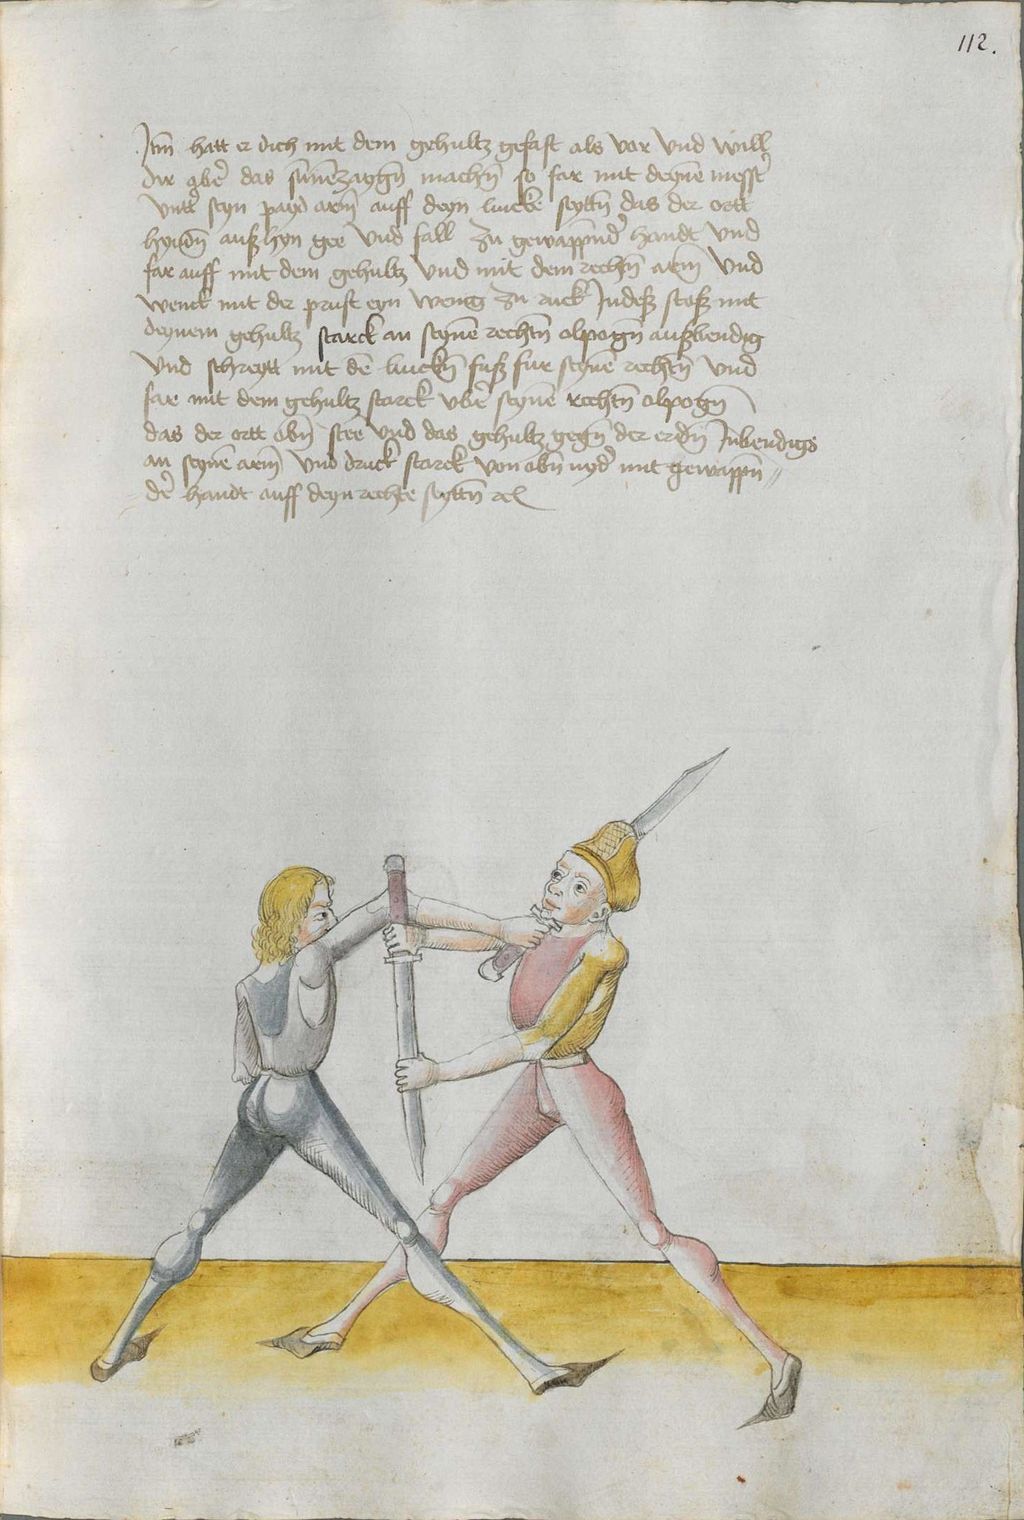 112.
Jtm hatt er dich mit dem gehultz gefast als vor Vnd will
dir vber̄ das sūnēzaygn̄ machn̄ so far mit deynē messr̄
Vntr̄ seyn payd arm̄ auff deyn lincke seyttn̄ das der ortt
hyndn̄ außhyn gee Vnd fall zu gewappnd̄ handt Vnd
far auff mit dem gehultz Vnd mit dem rechtn̄ arm Vnd
wenck mit der prust eyn weng zu ruck Jndeß stoß mit
deynem gehultz starck an seynē rechtn̄ elpogn̄ außbendig
Vnd schreytt mit dē linckn̄ fuß fur seynē rechtn̄ Vnd
far mit dem gehultz starck vber̄ seynē rechtn̄ elpogn̄
das der ortt obn̄ stee Vnd das gehultz gegn̄ der erdn̄ Jnbendigs
an seynē arm̄ Vnd druck starck von obn̄ nyd̄ mit gewappn̄
dē handt auff deyn rechte seyttn̄ rc